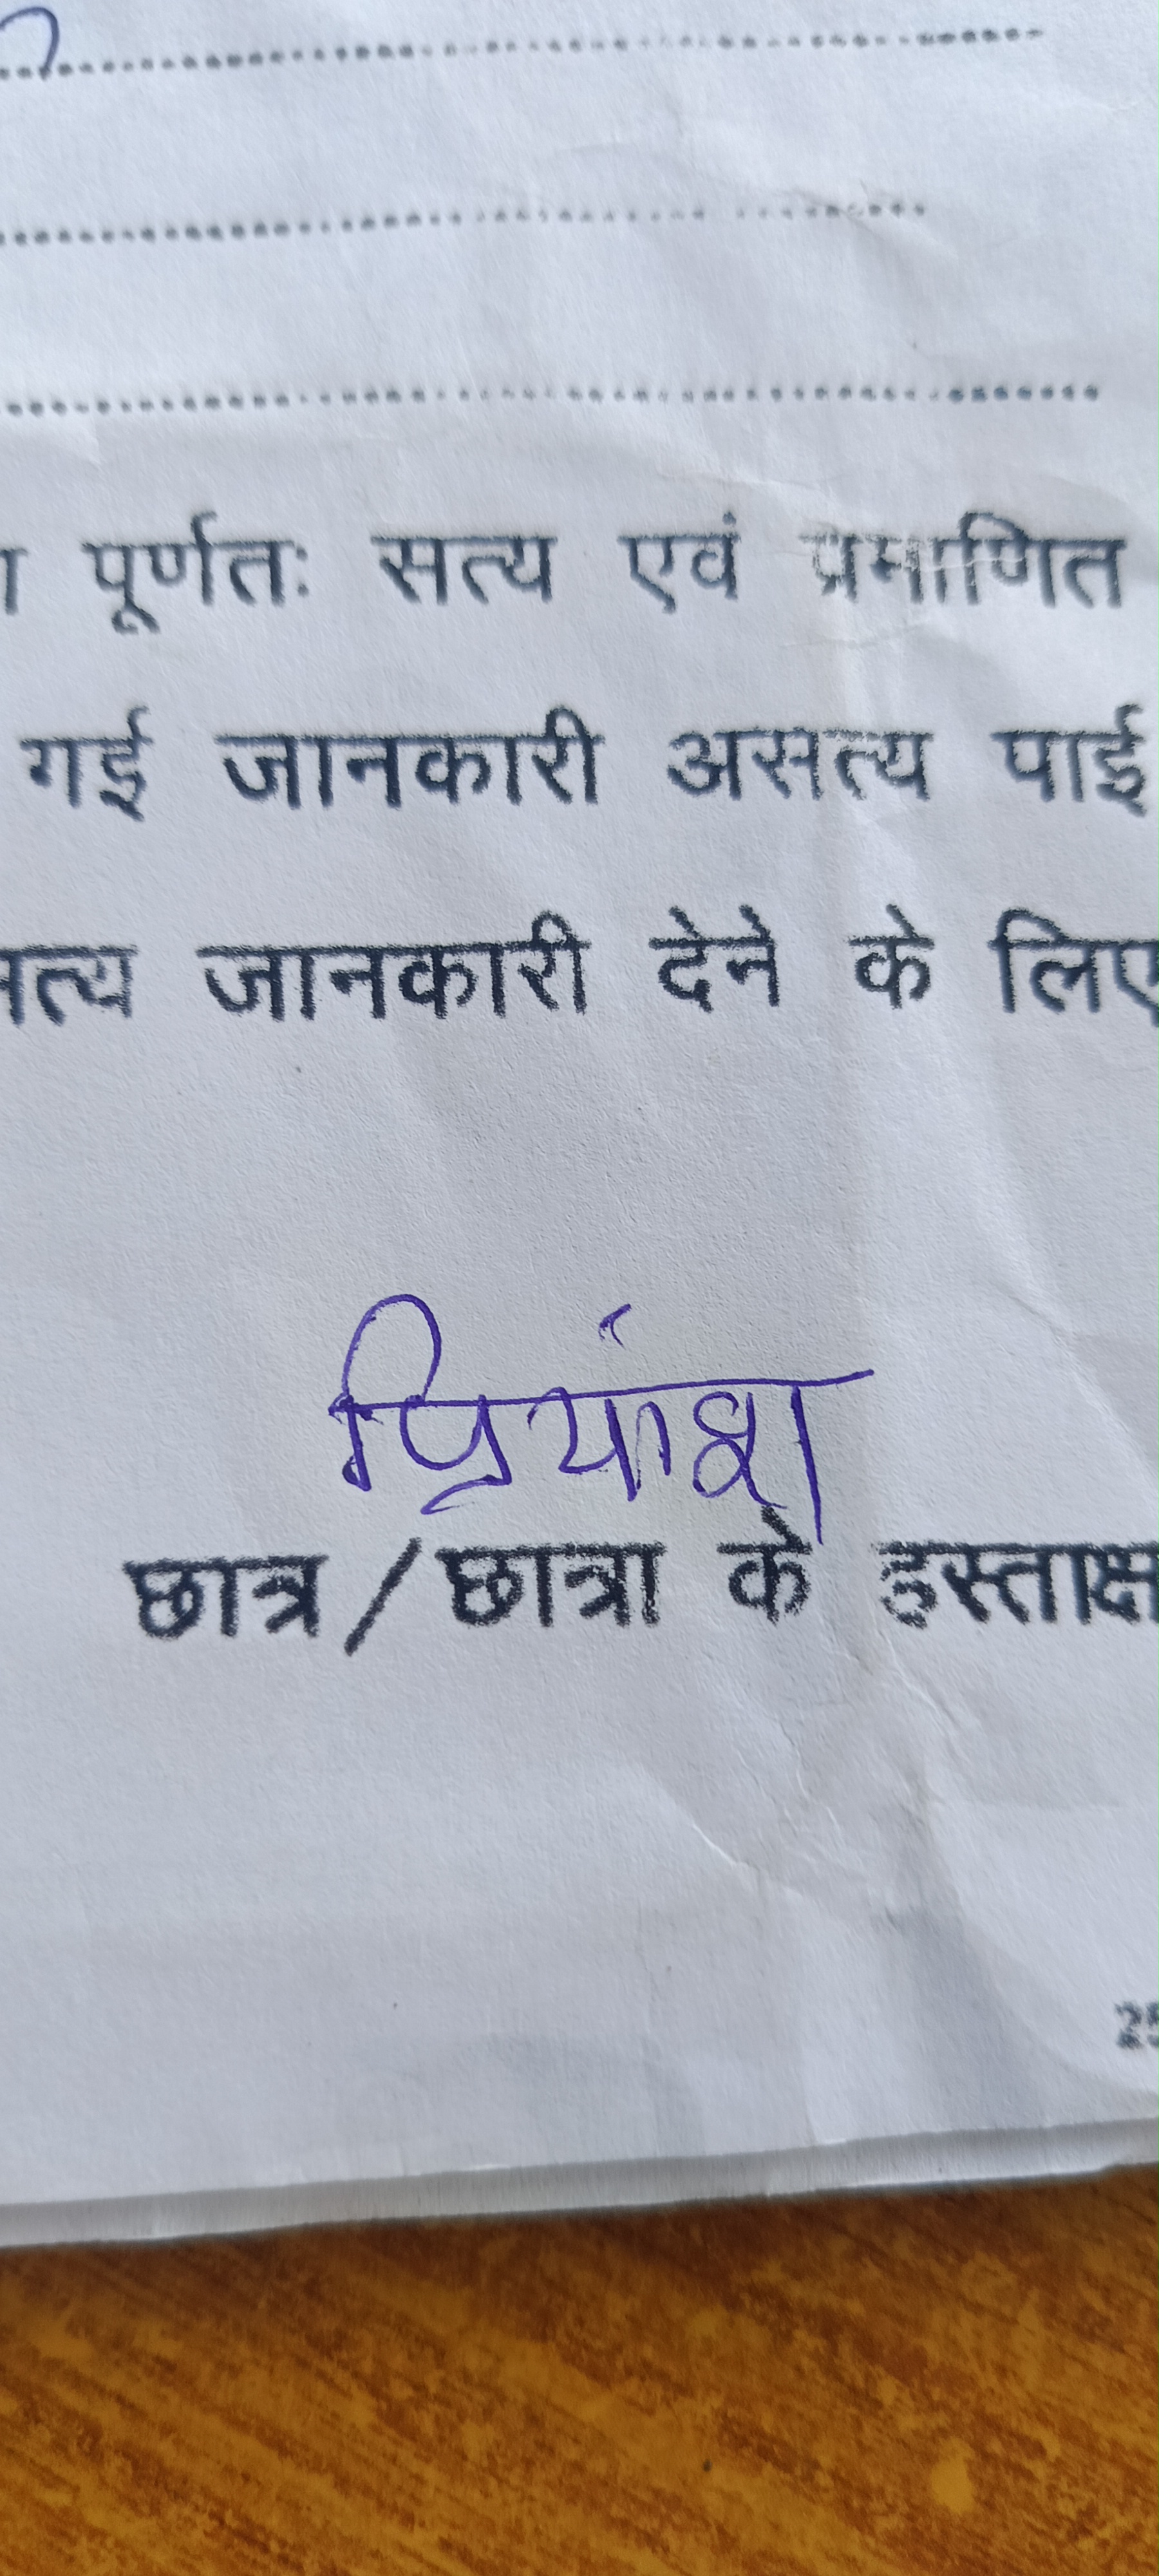 पूर्णतः सत्य एवं प्रमाणित
गई जानकारी असत्य पाई
जानकारी देने के लिए
प्रियांश
छात्र / छात्रा के